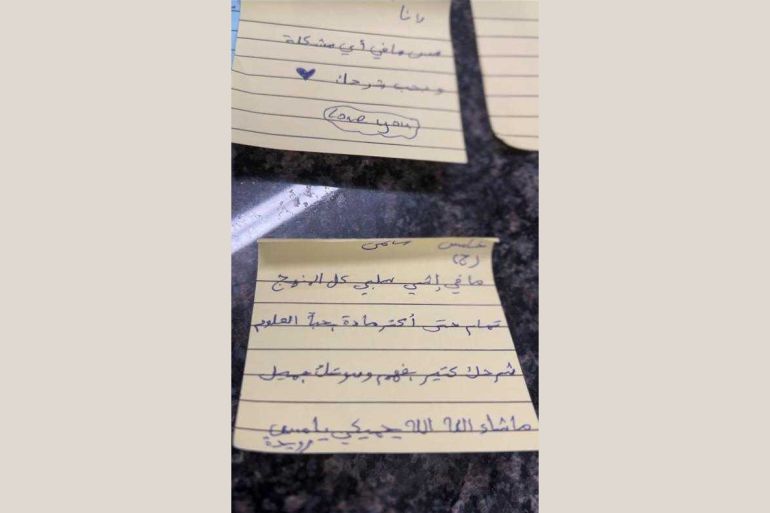 انا
مس ما في أي مشكلة
وبحب شرحك ♥
Love you
خامس
(ج)
ما في إشي سلبي كل المنهج
تمام حتى أكتر مادة بحبا العلوم
شرحك كتير بفهم وصوتك جميل
ماشاء الله الله يحميكي يا مس
رويدة